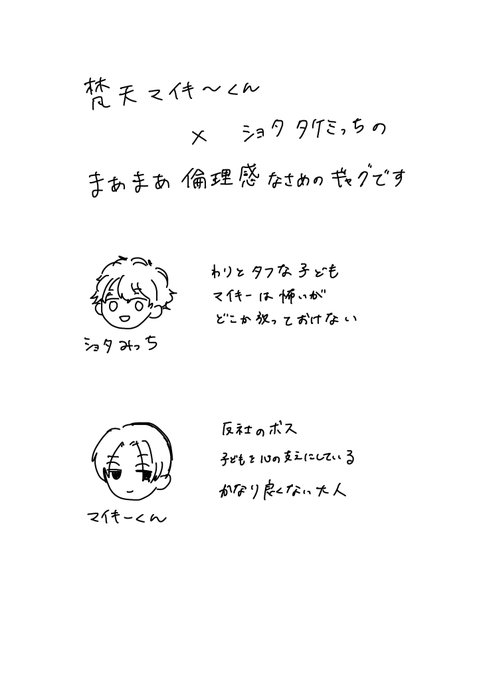 梵天マイキ〜くん
× ショタタケミっちの
まあまあ倫理感なさめのギャグです
わりとタフな子ども
マイキーは怖いが
どこか放っておけない
ショタみっち
反社のボス
子どもを心の支えにしている
かなり良くない大人
マイキーくん